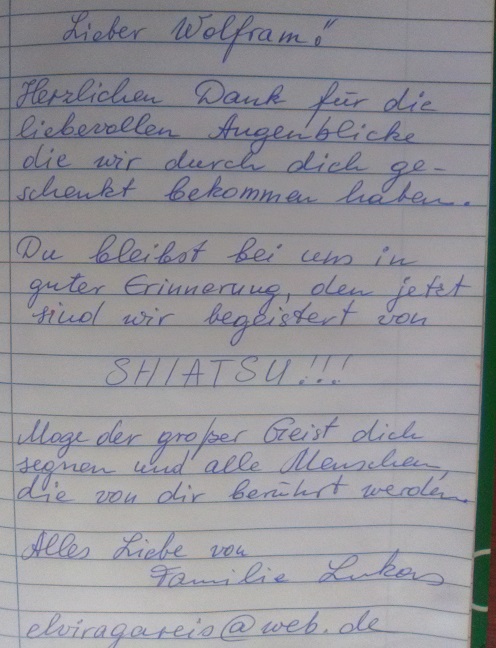 Lieber Wolfram!
Herzlichen Dank für die
liebevollen Augenblicke
die wir durch dich ge-
schenkt bekommen haben.
Du bleibst bei uns in
guter Erinnerung, den jetzt
sind wir begeistert von
SHIATSU!!!
Moge der großer Geist dich
segnen und alle Menschen,
die von dir berührt werden.
Alles Liebe von
Familie Lukas
elviragareis@web.de